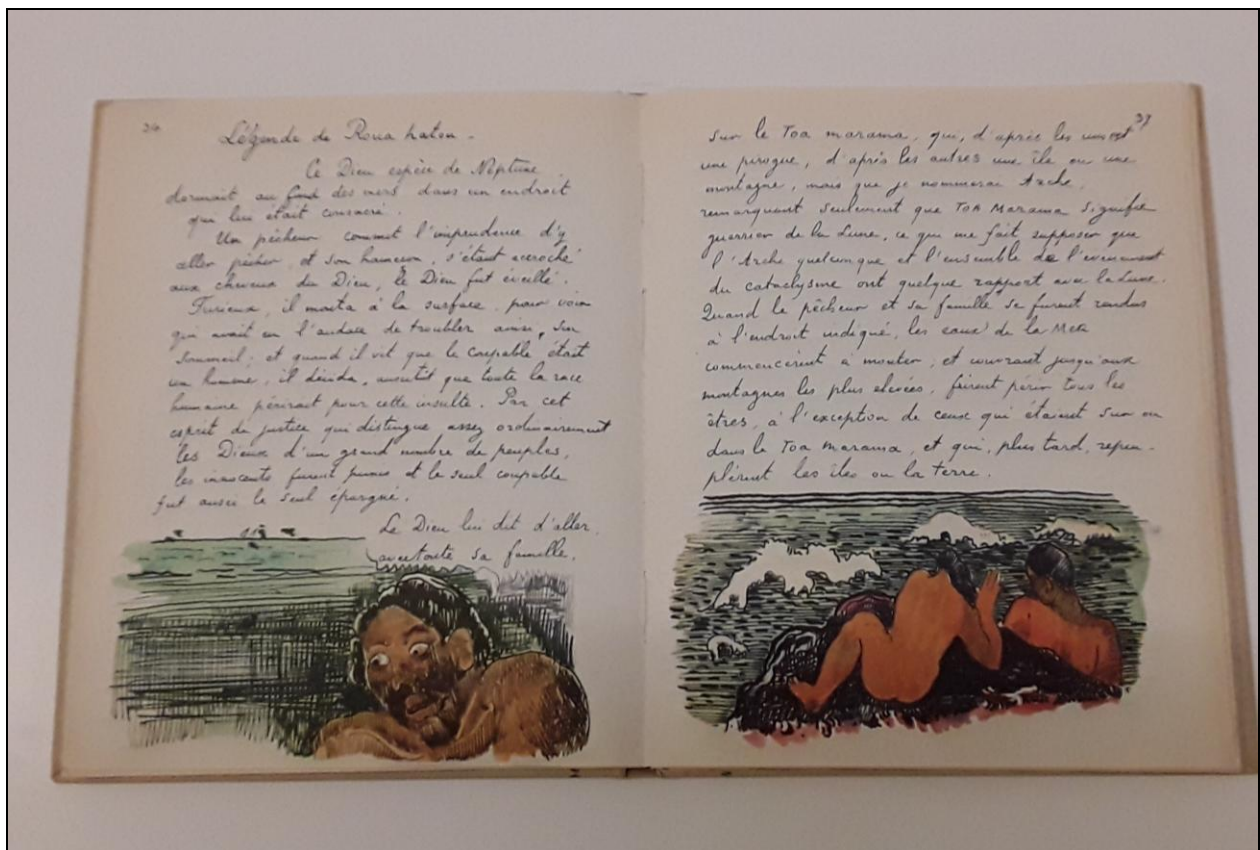 24
Légende de Roua hatou -
Ce Dieu espèce de Néptune
dormait au fond des mers dans un endroit
qui lui était consacré.
Un pêcheur commit l'imprudence d'y
aller pêcher, et son hameçon, s'étant accroché
aux cheveux du Dieu, le Dieu fut éveillé.
Furieux, il monta à la surface, pour voir
qui avait eu l'audace de troubler ainsi, son
sommeil; et quand il vit que le coupable était
un homme, il décida, aussitôt que toute la race
humaine périrait pour cette insulte. Par cet
esprit de justice qui distingue assez ordinairement
les Dieux d'un grand nombre de peuples,
les innocents furent punis et le seul coupable
fut aussi le seul épargné.
Le Dieu lui dit d'aller,
avec toute sa famille,
sur le Toa marama, qui, d'après les uns est
une pirogue, d'après les autres une île ou une
montagne, mais que je nommerai Arche,
remarquant seulement que TOA Marama signifie
guerrier de la Lune, ce qui me fait supposer que
l'Arche quelconque et l'ensemble de l'évènement
du cataclysme ont quelque rapport avec la Lune.
Quand le pêcheur et sa famille se furent rendus
à l'endroit indiqué, les eaux de la Mer
commencèrent à monter, et couvrant jusqu'aux
montagnes les plus élevées, firent périr tous les
êtres, à l'exception de ceux qui étaient sur ou
dans le Toa marama, et qui, plus tard, repeu-
plèrent les îles ou la terre.